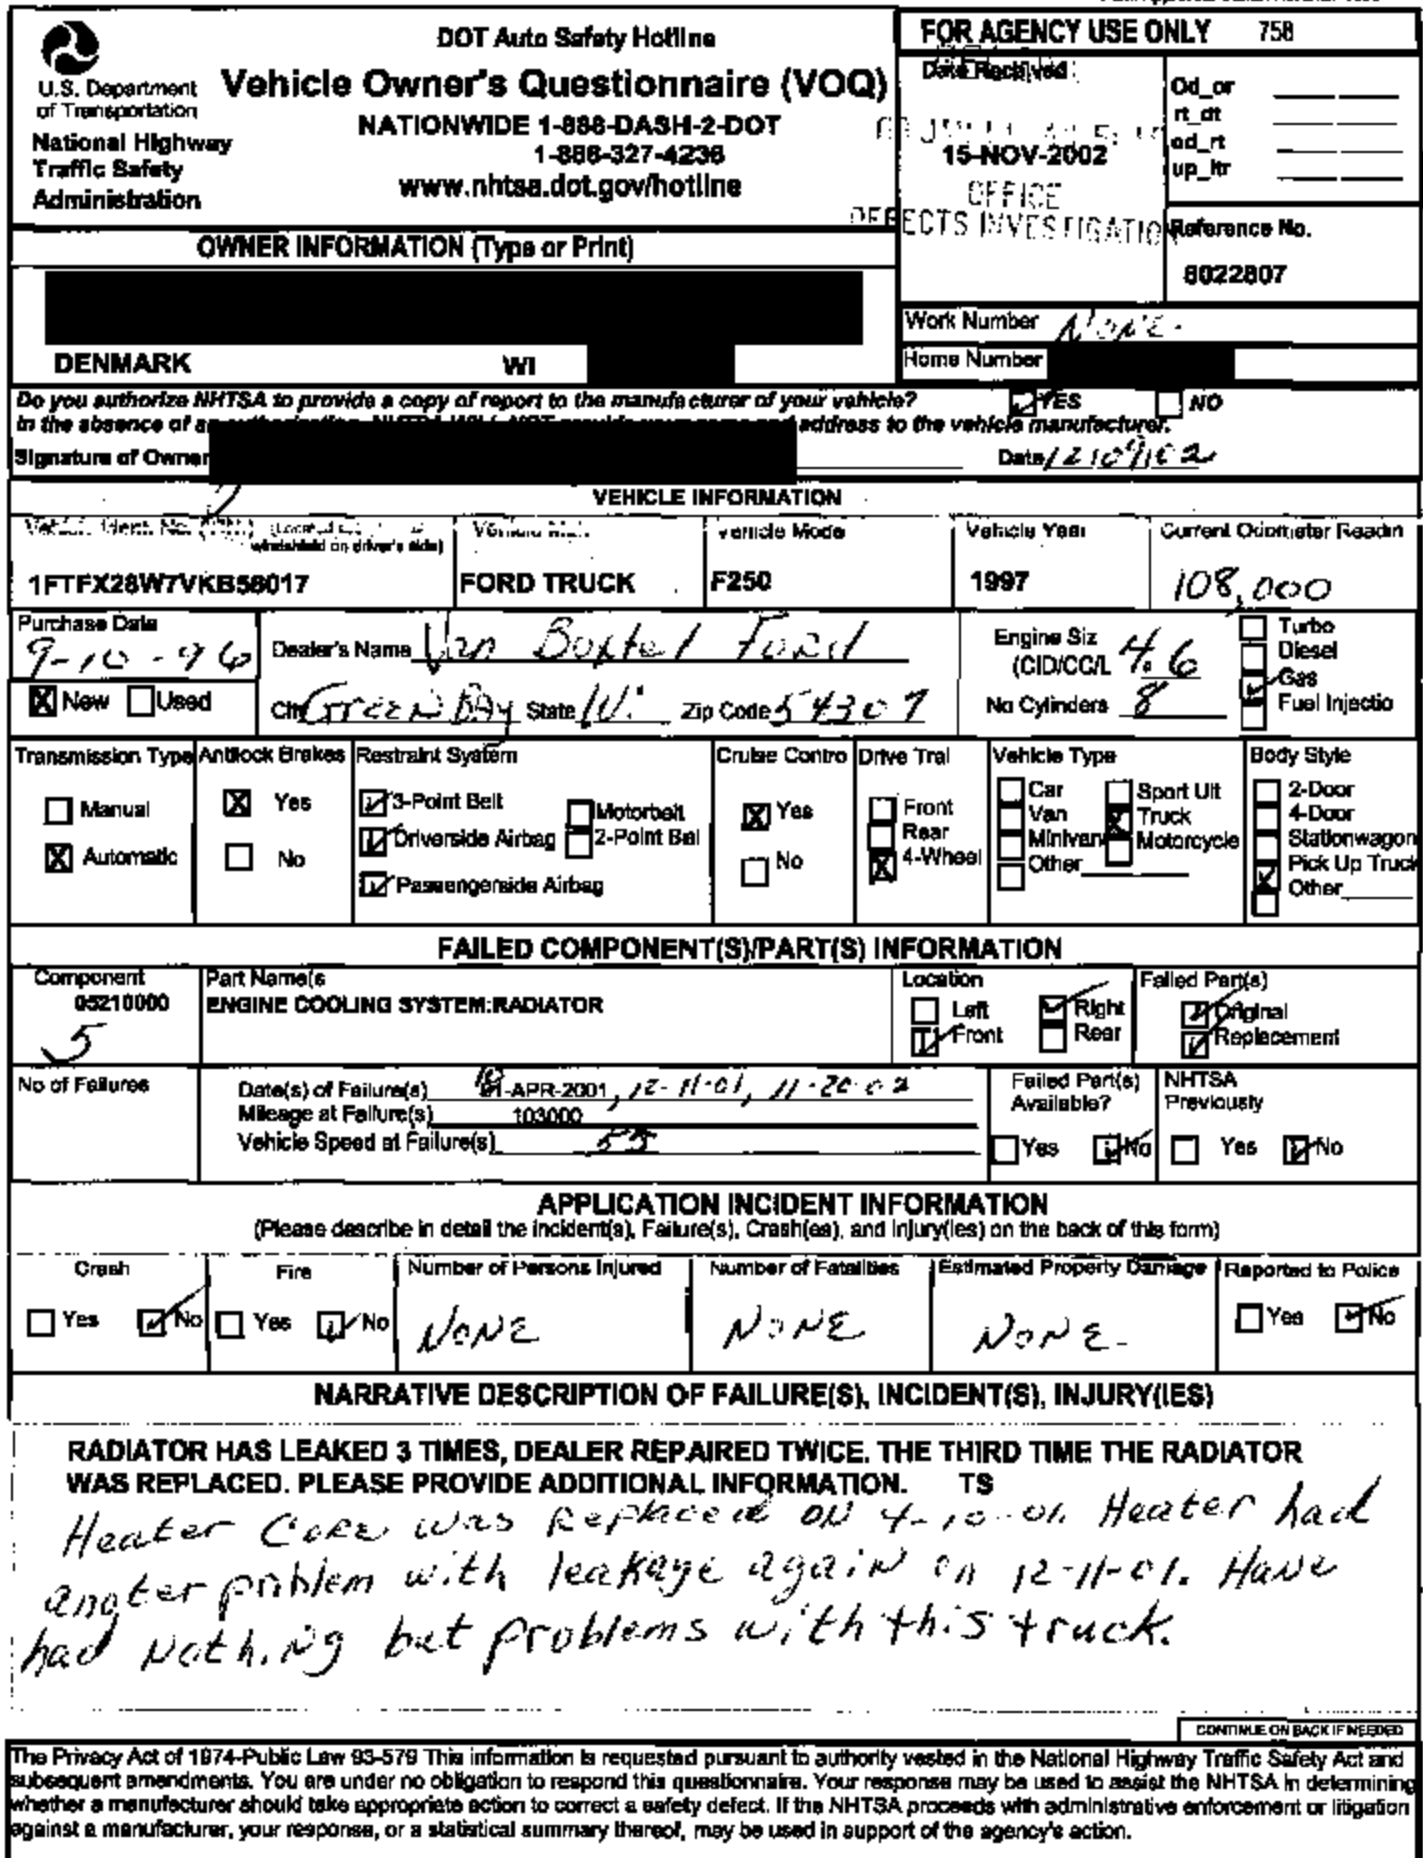 DOT Auto Safety Hotline
Vehicle Owner's Questionnaire (VOQ)
NATIONWIDE 1-888-DASH-2-DOT
1-888-327-4236
www.nhtsa.dot.gov/hotline
U.S. Department
of Transportation
National Highway
Traffic Safety
Administration
FOR AGENCY USE ONLY 758
Date Received
15-NOV-2002
OFFICE
DEFECTS INVESTIGATION
Od_or
rt_dt
od_rt
up_ltr
Reference No.
8022807
OWNER INFORMATION (Type or Print)
DENMARK WI
Work Number NONE.
Home Number
Do you authorize NHTSA to provide a copy of report to the manufacturer of your vehicle? YES NO
In the absence of address to the vehicle manufacturer.
Signature of Owner Date 12/09/02
VEHICLE INFORMATION
windshield on driver's side) Vehicle Mode Vehicle Year Current Odometer Readin
1FTFX28W7VKB58017 FORD TRUCK F250 1997 108,000
Purchase Date
9-10-96
New Used
Dealer's Name Van Boxtel Ford
City Green Bay State W. Zip Code 54307
Engine Siz
(CID/CC/L 4.6
No Cylinders 8
Turbo
Diesel
Gas
Fuel Injectio
Transmission Type Antilock Brakes Restraint System Cruise Contro Drive Trai Vehicle Type Body Style
Manual
Automatic
Yes
No
3-Point Belt
Driverside Airbag
Passengerside Airbag
Motorbelt
2-Point Bel
Yes
No
Front
Rear
4-Wheel
Car
Van
Minivan
Other
Sport Ult
Truck
Motorcycle
2-Door
4-Door
Stationwagon
Pick Up Truck
Other
FAILED COMPONENT(S)/PART(S) INFORMATION
Component Part Name(s Location Failed Part(s)
05210000 ENGINE COOLING SYSTEM:RADIATOR
5
Left Right
Front Rear
Original
Replacement
No of Failures
Date(s) of Failure(s) 10 01-APR-2001, 12-11-01, 11-20-02
Mileage at Failure(s) 103000
Vehicle Speed at Failure(s) 55
Failed Part(s)
Available?
Yes No
NHTSA
Previously
Yes No
APPLICATION INCIDENT INFORMATION
(Please describe in detail the incident(s), Failure(s), Crash(es), and Injury(ies) on the back of this form)
Crash Fire Number of Persons Injured Number of Fatalities Estimated Property Damage Reported to Police
Yes No Yes No NONE NONE NONE- Yes No
NARRATIVE DESCRIPTION OF FAILURE(S), INCIDENT(S), INJURY(IES)
RADIATOR HAS LEAKED 3 TIMES, DEALER REPAIRED TWICE. THE THIRD TIME THE RADIATOR
WAS REPLACED. PLEASE PROVIDE ADDITIONAL INFORMATION. TS
Heater Core was Replaced ON 4-10-01. Heater had
angter problem with leakage again on 12-11-01. Have
had Nothing but problems with this truck.
CONTINUE ON BACK IF NEEDED
The Privacy Act of 1974-Public Law 93-579 This information is requested pursuant to authority vested in the National Highway Traffic Safety Act and
subsequent amendments. You are under no obligation to respond this questionnaire. Your response may be used to assist the NHTSA in determining
whether a manufacturer should take appropriate action to correct a safety defect. If the NHTSA proceeds with administrative enforcement or litigation
against a manufacturer, your response, or a statistical summary thereof, may be used in support of the agency's action.